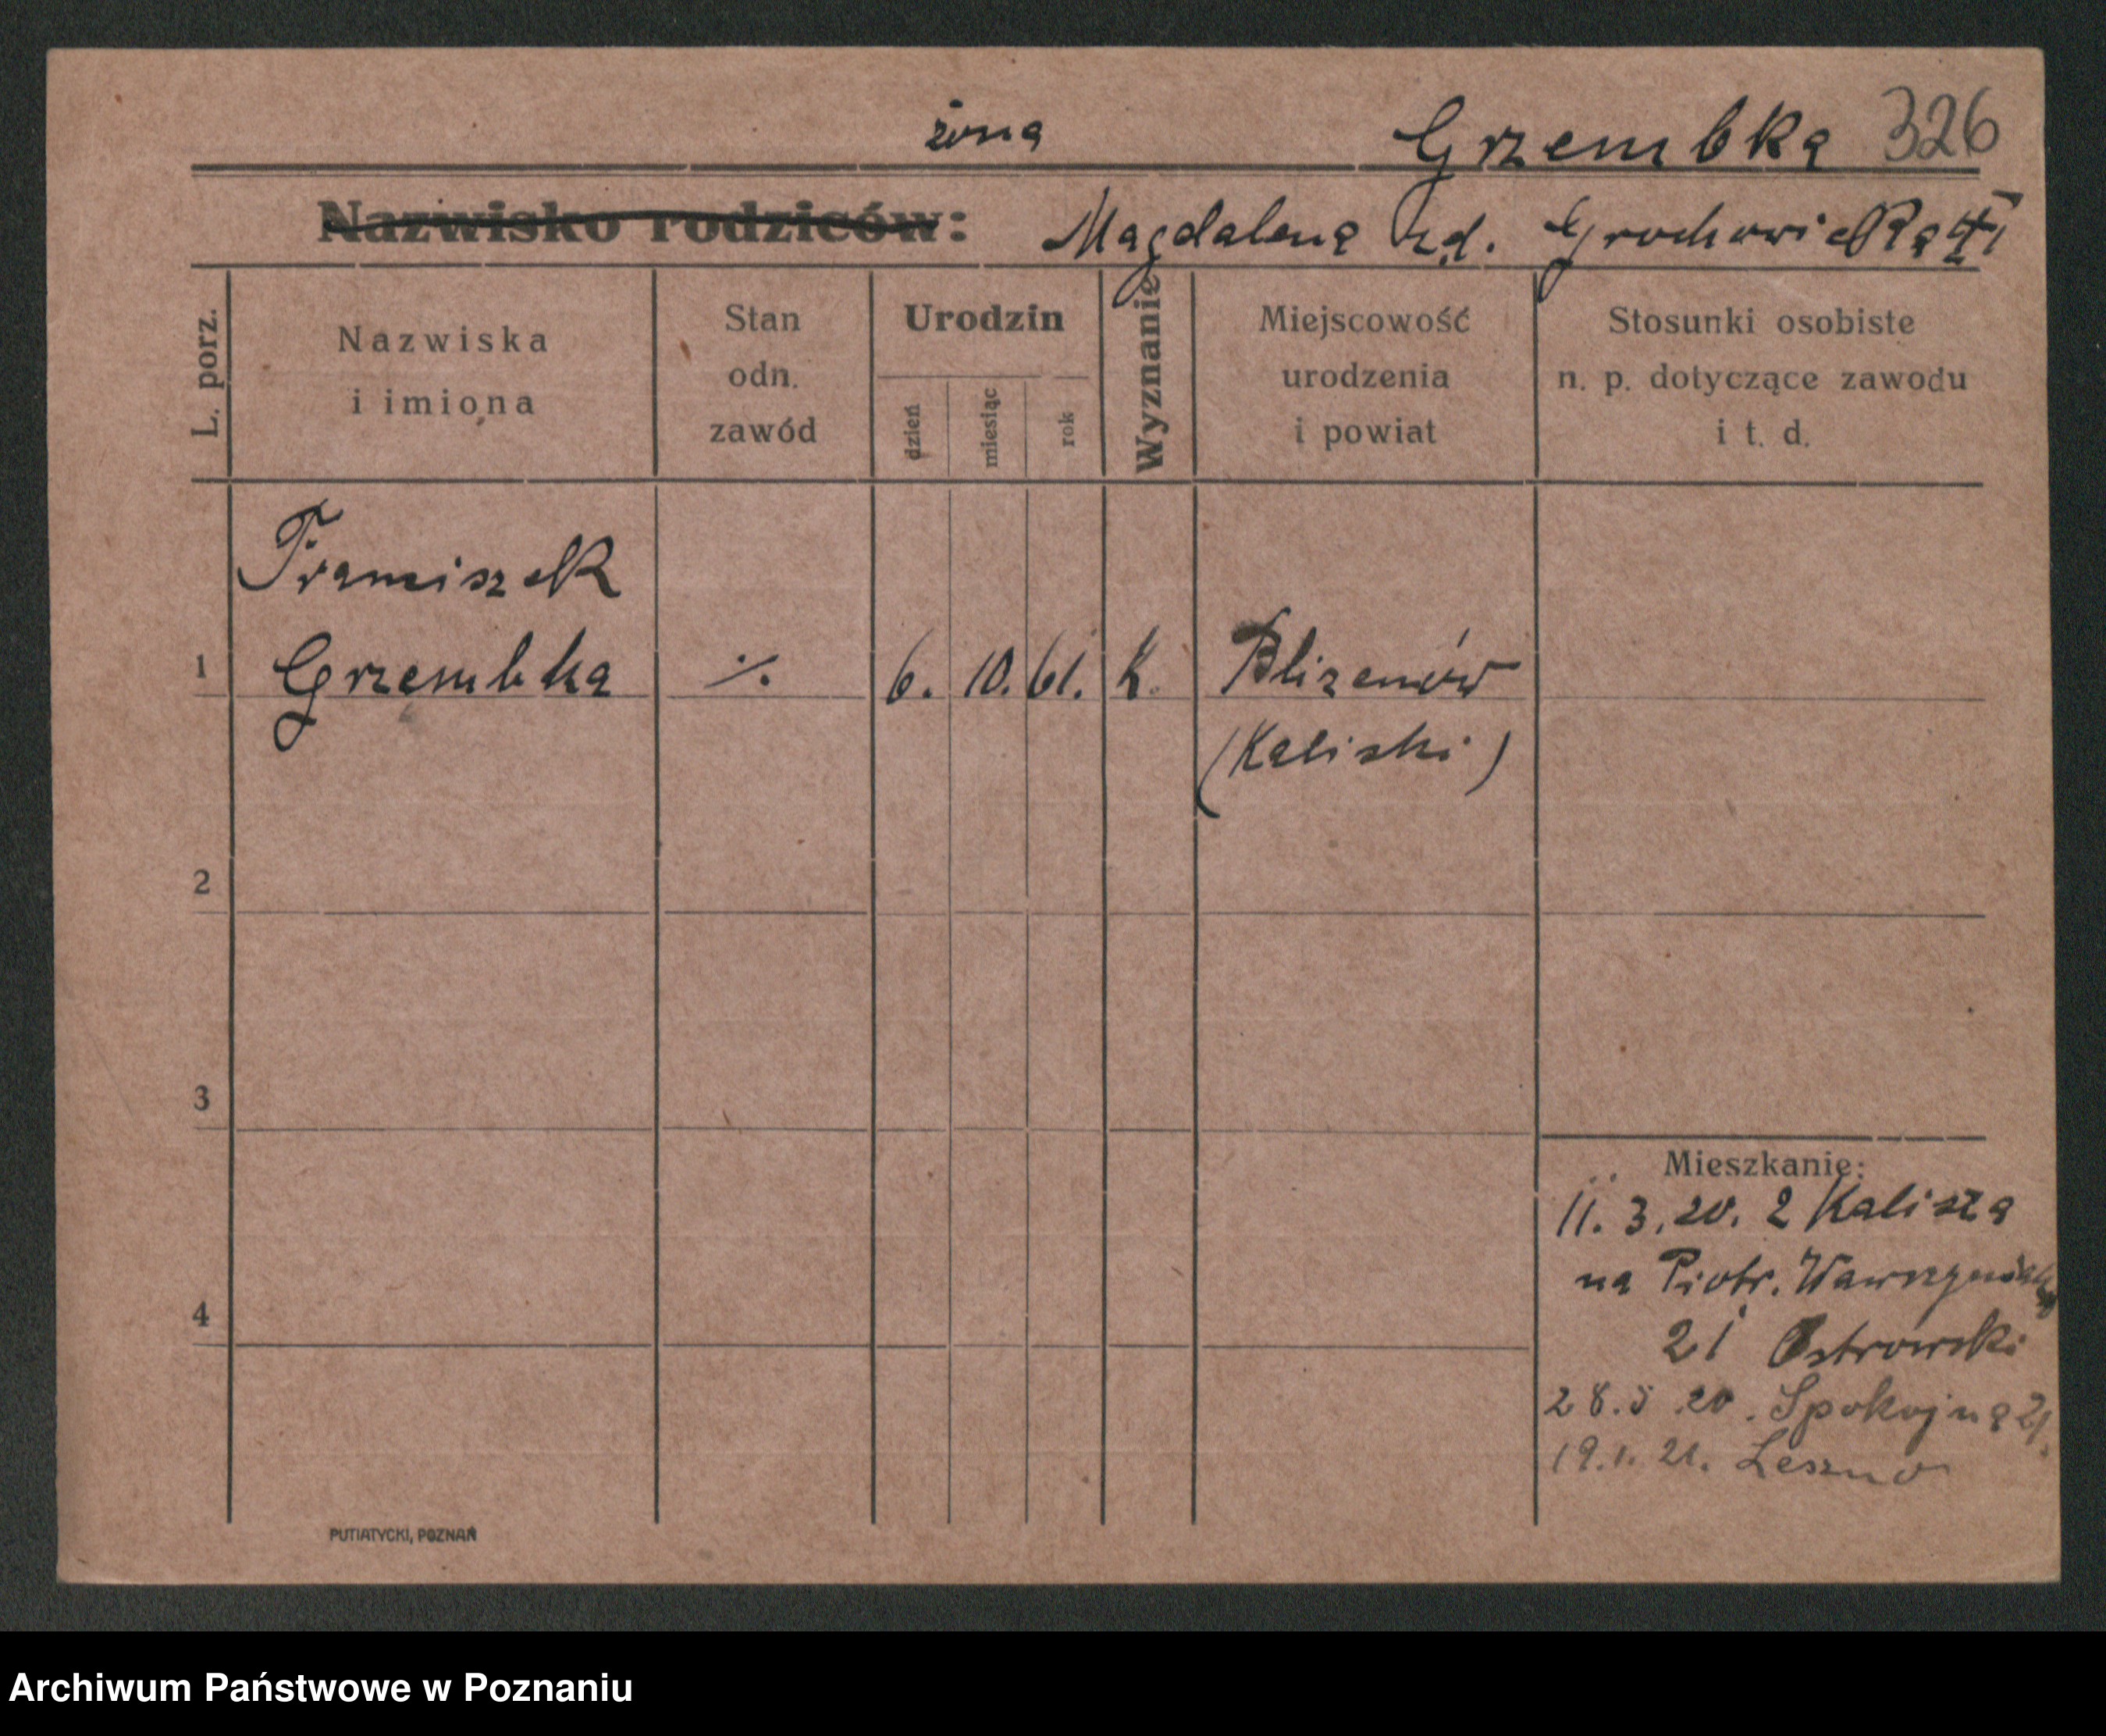 żona Grzembka 326
Nazwisko rodziców: Magdalena zd. Grochowicka
L. porz.
Nazwiska
i imiona
Stan
odn.
zawód
Urodzin
dzień
miesiąc
rok
Wyznanie
Miejscowość
urodzenia
i powiat
Stosunki osobiste
n. p. dotyczące zawodu
i t. d.
Franciszek
1 Grzembka ./. 6. 10. 61. K. Blizanów
(Kaliski)
2
3
4
Mieszkanie:
11. 3. 20. z Kalisza
na Piotr. Wawrzyniaka
21 Ostrowski
28. 5 20. Spokojna 21.
19. 1. 21. Leszno
PUTIATYCKI, POZNAŃ
Archiwum Państwowe w Poznaniu